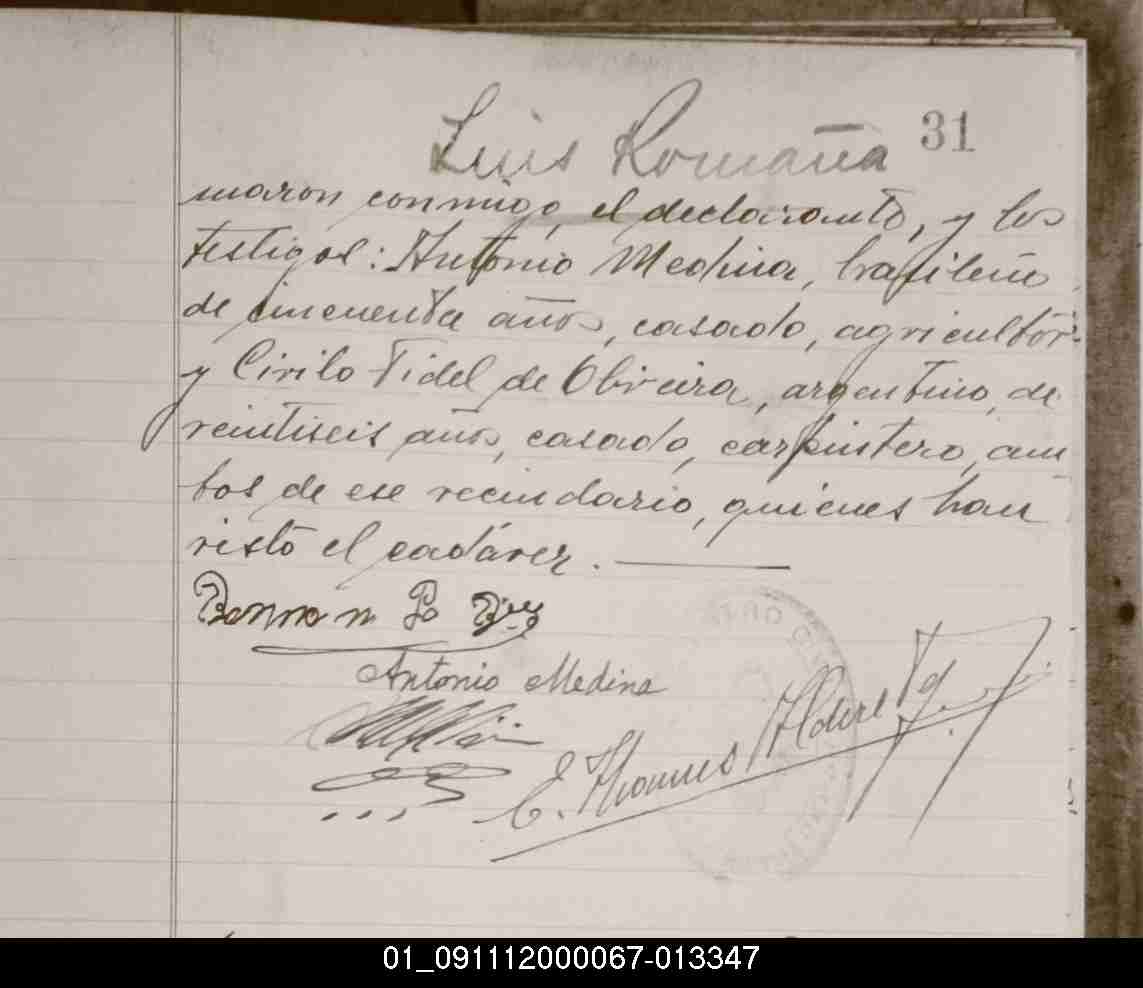 Luis Romaña 31
maron conmigo, el declarante, y los
testigos: Antonio Medina, brasileño
de cincuenta años, casado, agricultor
y Cirilo Fidel de Oliveira, argentino, de
veintiseis años, casado, carpintero, am
bos de ese vecindario, quienes han
visto el cadáver.
Antonio Medina
01_091112000067-013347